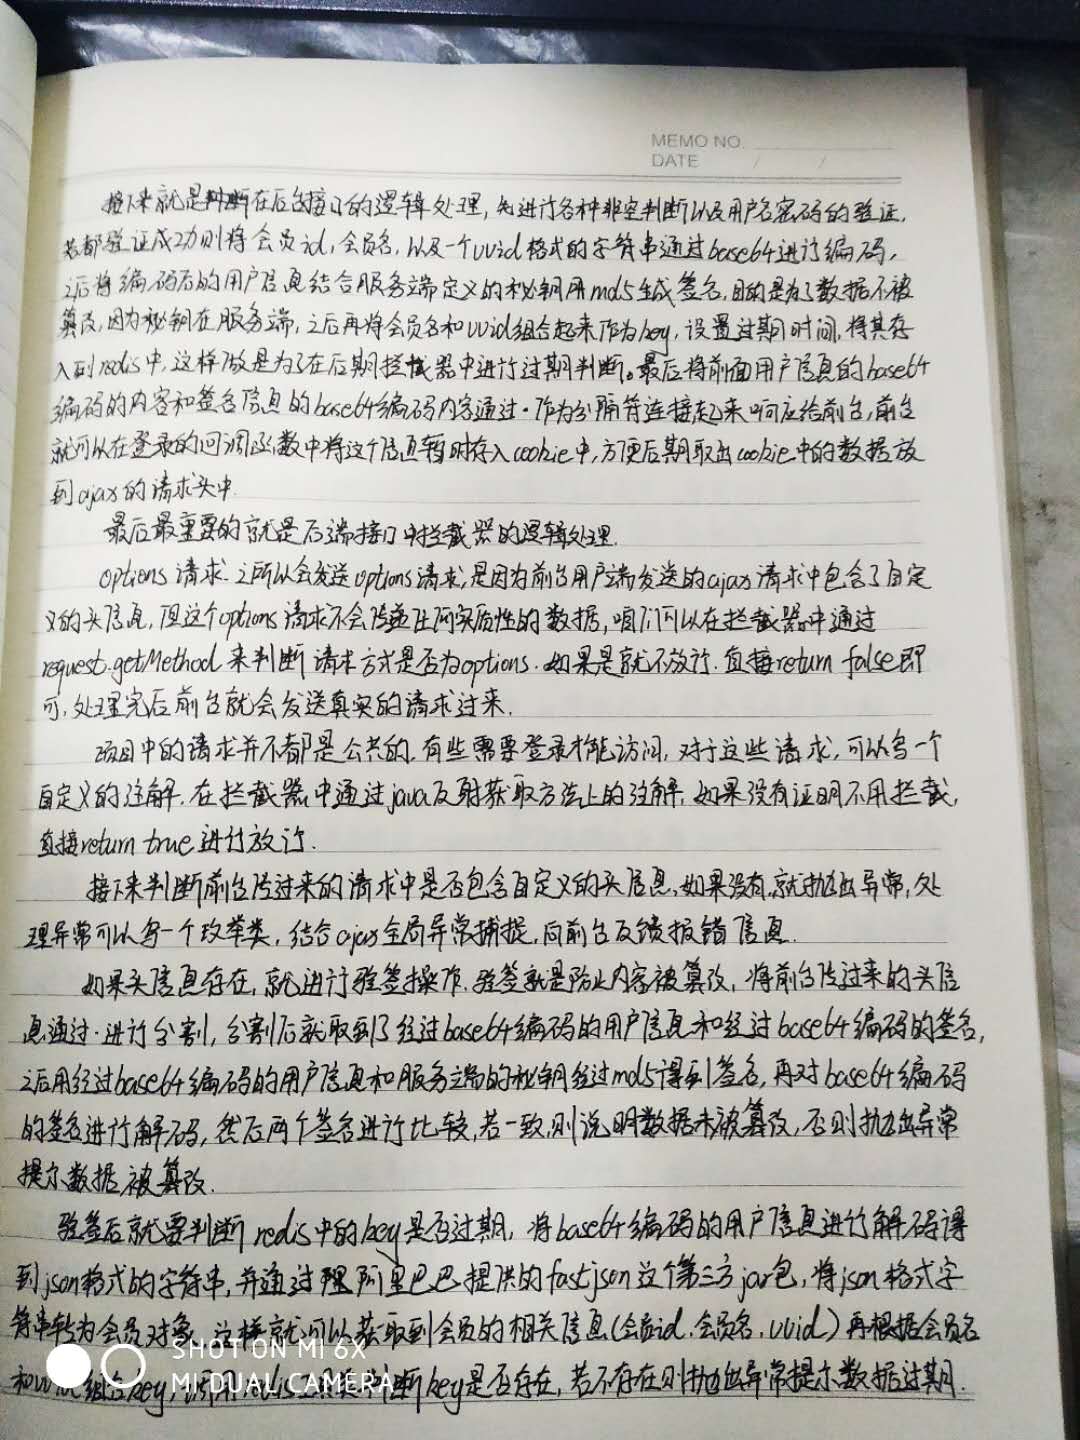 MEMO NO.
DATE / /
接下来就是判断在后台接口的逻辑处理,先进行各种非空判断以及用户名密码的验证,
若都验证成功则将会员id,会员名,以及一个uuid格式的字符串通过base64进行编码,
之后将编码后的用户信息结合服务端定义的秘钥用md5生成签名,目的是为了数据不被
篡改,因为秘钥在服务端,之后再将会员名和uuid组合起来作为key,设置过期时间,将其存
入到redis中,这样做是为了在后期拦截器中进行过期判断。最后将前面用户信息的base64
编码的内容和签名信息的base64编码内容通过·作为分隔符连接起来响应给前台,前台
就可以在登录的回调函数中将这个信息暂时存入cookie中,方便后期取出cookie中的数据放
到ajax的请求头中.
最后最重要的就是后端接口中拦截器的逻辑处理.
options请求.之所以会发送options请求,是因为前台用户端发送的ajax请求中包含了自定
义的头信息,但这个options请求不会传递任何实质性的数据,咱们可以在拦截器中通过
request.getMethod来判断请求方式是否为options.如果是就不放行.直接return false即
可,处理完后前台就会发送真实的请求过来.
项目中的请求并不都是公共的.有些需要登录才能访问,对于这些请求,可以写一个
自定义的注解.在拦截器中通过java反射获取方法上的注解,如果没有证明不用拦截,
直接return true进行放行.
接下来判断前台传过来的请求中是否包含自定义的头信息,如果没有.就抛出异常,处
理异常可以写一个枚举类,结合ajax全局异常捕捉,向前台反馈报错信息.
如果头信息存在,就进行验签操作.验签就是防止内容被篡改,将前台传过来的头信
息通过·进行分割,分割后就取到了经过base64编码的用户信息和经过base64编码的签名,
之后用经过base64编码的用户信息和服务端的秘钥经过md5得到签名,再对base64编码
的签名进行解码,然后两个签名进行比较,若一致,则说明数据未被篡改,否则抛出异常
提示数据被篡改.
验签后就要判断redis中的key是否过期,将base64编码的用户信息进行解码得
到json格式的字符串,并通过阿里巴巴提供的fastjson这个第三方jar包,将json格式字
符串转为会员对象,这样就可以获取到会员的相关信息(会员id.会员名,uuid)再根据会员名
和uuid组合key,判断key是否存在,若不存在则抛出异常提示数据过期.
SHOT ON MI 6X
MI DUAL CAMERA